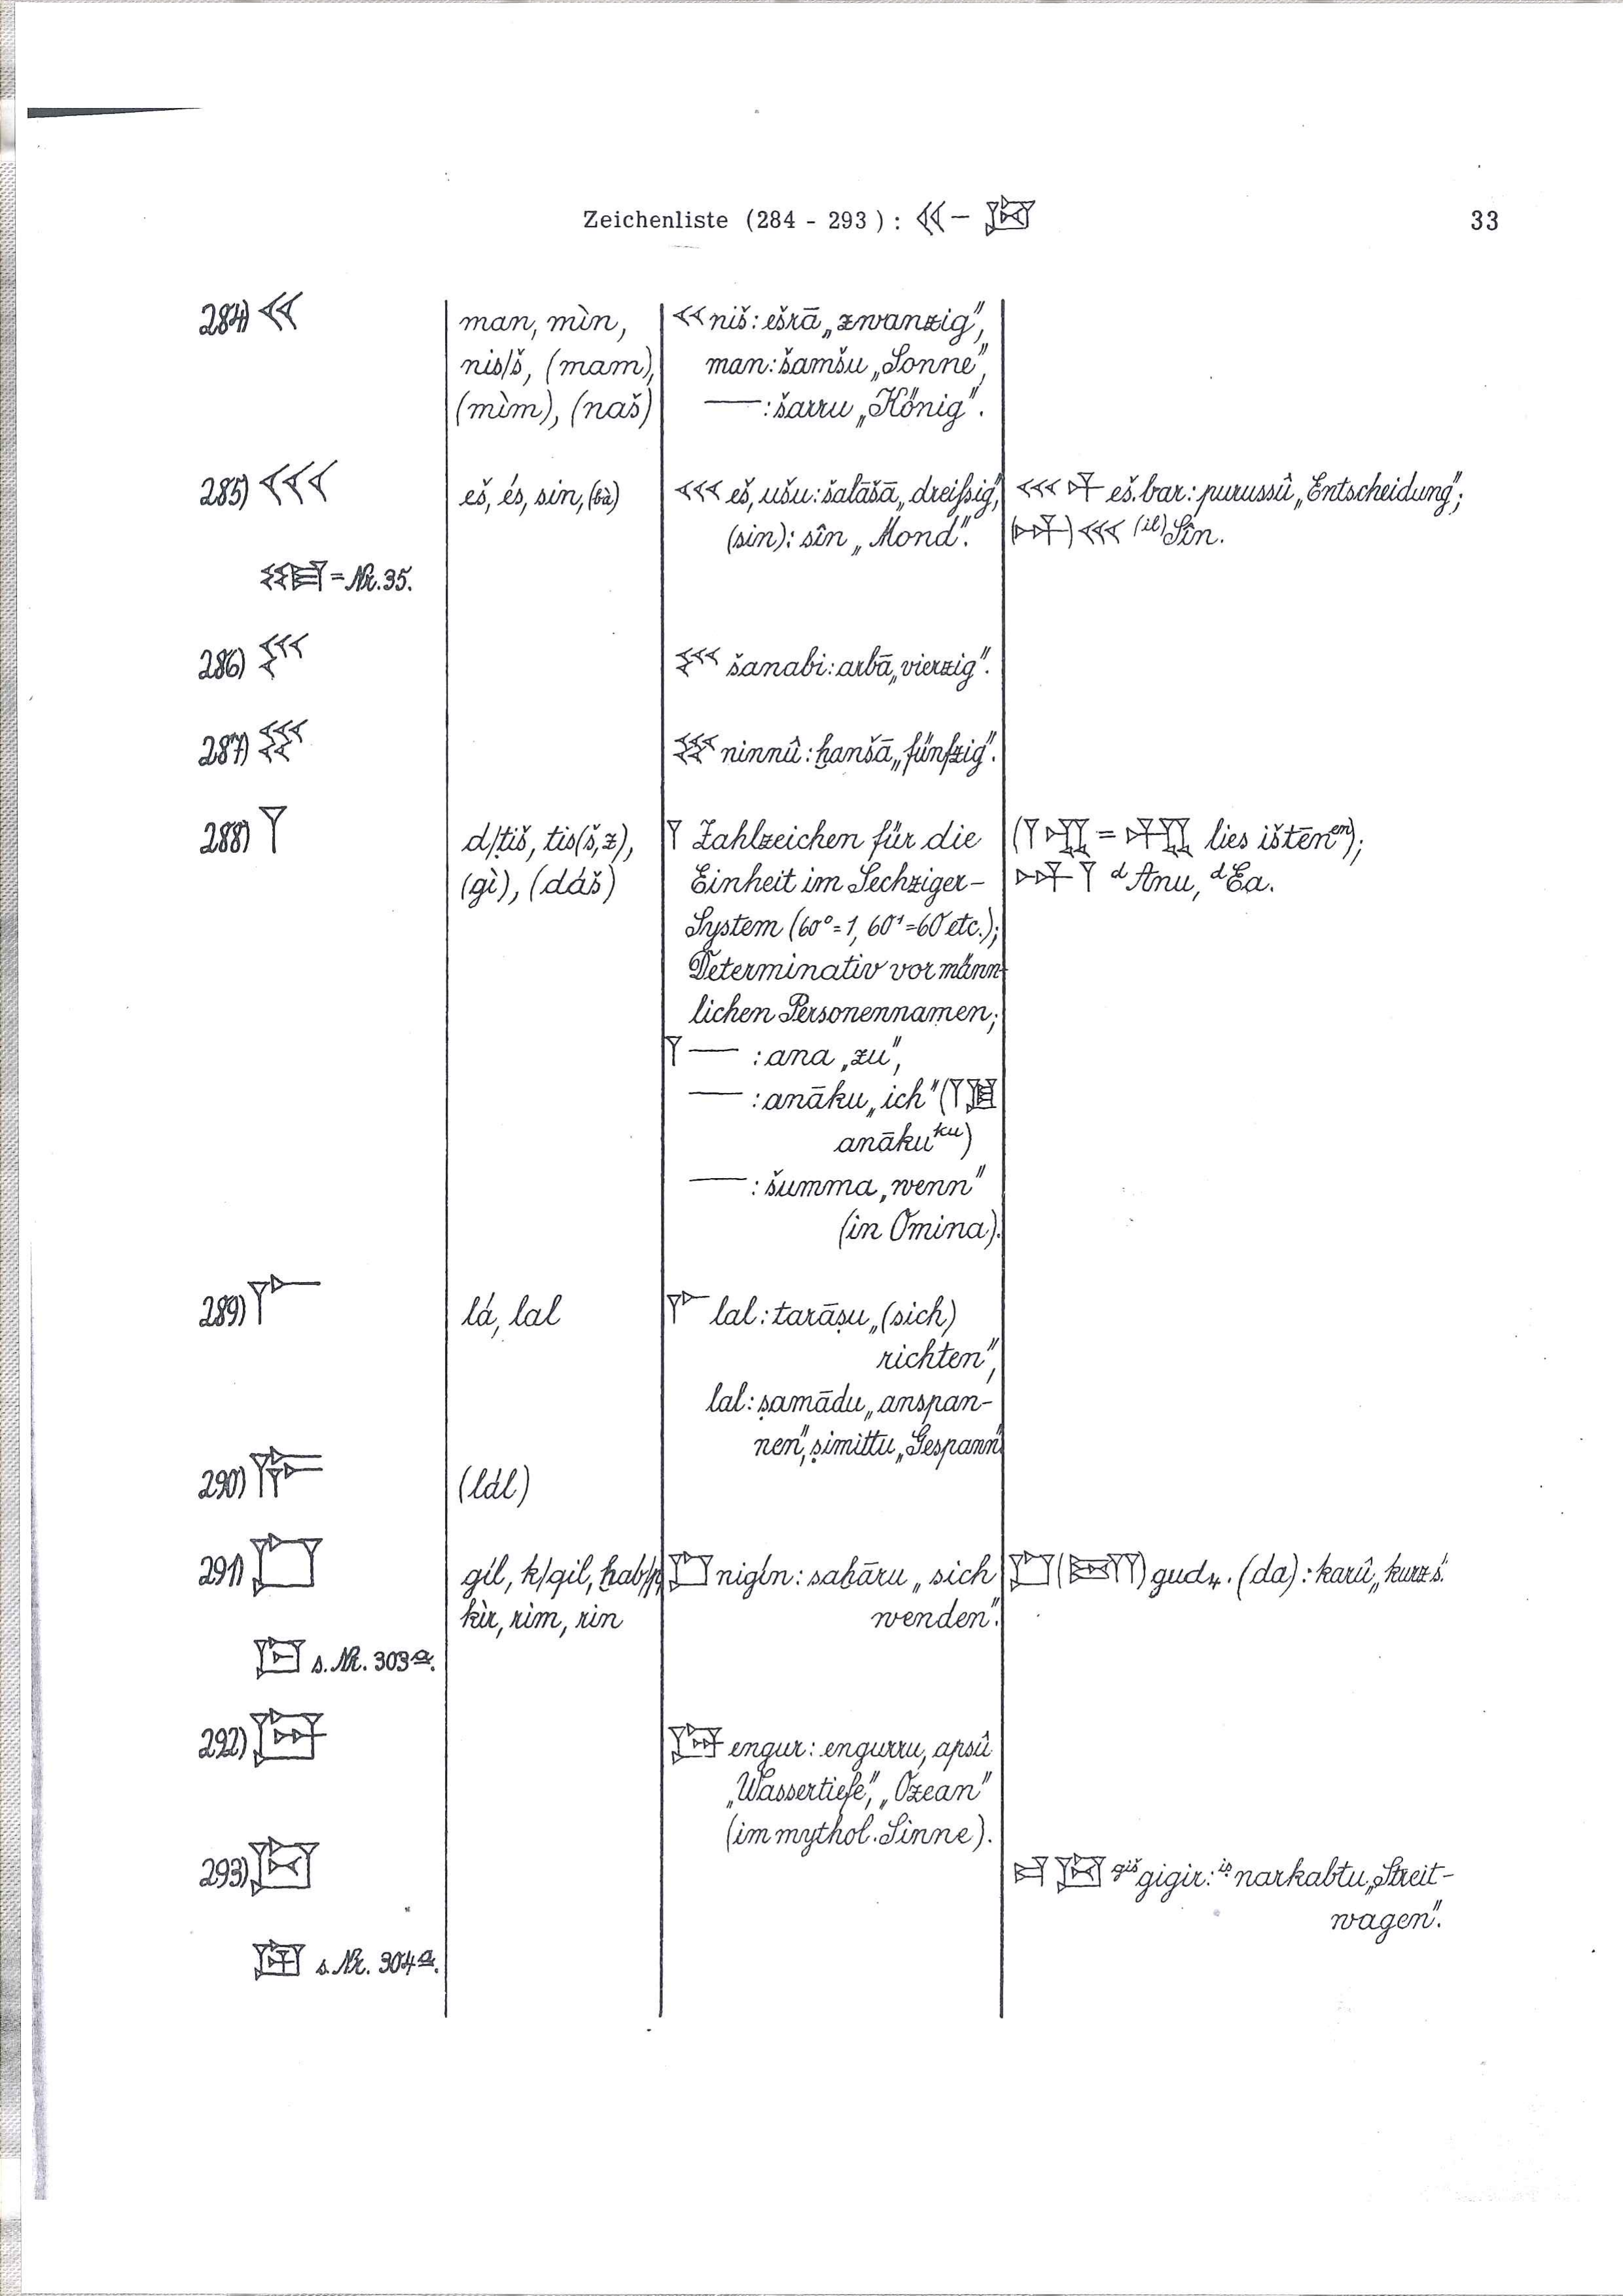 Zeichenliste (284 - 293) : 𒌋𒌋 –
33
284) 𒌋𒌋
man, mìn,
nis/š, (mam),
(mìm), (naš)
𒌋𒌋 niš: ešrā „zwanzig“,
man: šamšu „Sonne“,
— : šarru „König“.
285) 𒌋𒌋𒌋
eš, és, sin, (bà)
𒌋𒌋𒌋 eš, ušu: šalāšā „dreißig“,
(sin): sîn „Mond“.
𒌋𒌋𒌋 𒁇 eš.bar: purussû „Entscheidung“;
(𒀭) 𒌋𒌋𒌋 (il)Sîn.
= Nr. 35.
286)
šanabi: arbā „vierzig“.
287)
ninnû: ḫanšā „fünfzig“.
288) 𒁹
d/ṭiš, tis(š,z),
(gì), (dáš)
𒁹 Zahlzeichen für die
Einheit im Sechziger-
System (60⁰=1, 60¹=60 etc.);
Determinativ vor männ-
lichen Personennamen;
𒁹 — : ana „zu“,
— : anāku „ich“ (𒁹𒆪
anāku ku)
— : šumma „wenn“
(in Omina).
(𒁹 = lies ištēn en);
𒀭 𒁹 d Anu, d Ea.
289) 𒇲
lá, lal
𒇲 lal: tarāṣu „(sich)
richten“,
lal: ṣamādu „anspan-
nen“, ṣimittu „Gespann“
290) 𒇳
(lál)
291) 𒆸
gíl, k/gil, ḫab/p,
kìr, rim, rin
𒆸 nigín: saḫāru „sich
wenden“.
𒆸 (𒁕) gud₄.(da): karû „kurz s.“
s. Nr. 303a.
292) 𒇉
𒇉 engur: engurru, apsû
„Wassertiefe“, „Ozean“
(im mythol. Sinne).
293) 𒇀
𒄑 𒇀 giš gigir: iṣ narkabtu „Streit-
wagen“.
s. Nr. 304a.